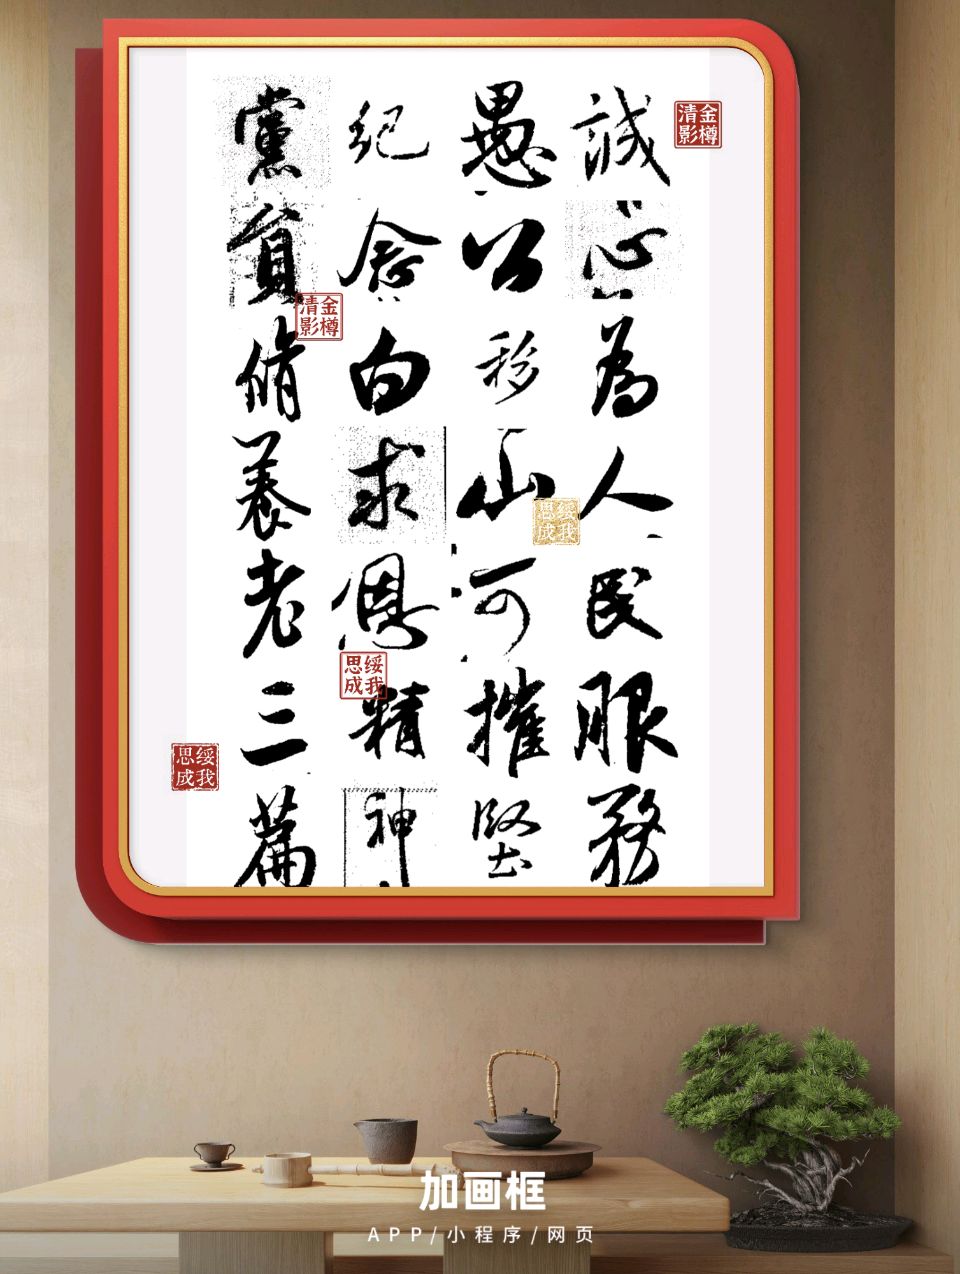 誠心為人民服務
愚公移山可摧堅
紀念白求恩精神
黨員脩養老三篇
金樽清影
金樽清影
绥我思成
绥我思成
绥我思成
加画框
APP/小程序/网页